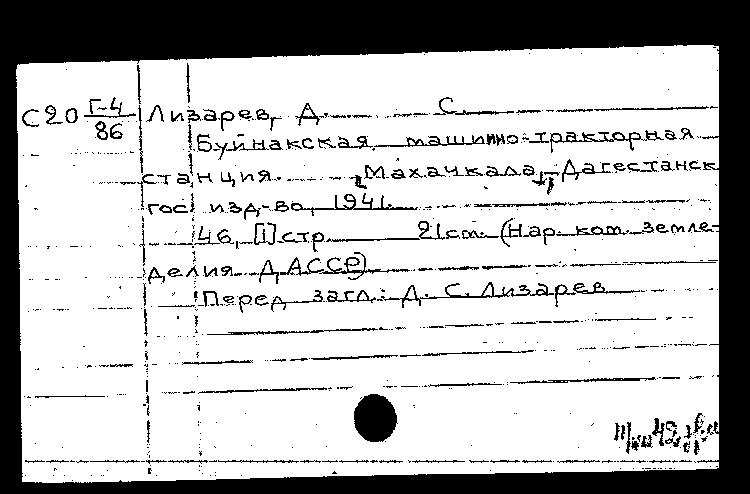 С20 Г-4/86 Лизарев, Д. С.
Буйнакская машинно-тракторная
станция. Махачкала, Дагестанск
гос. изд-во, 1941.
46, [1] стр. 21 см. (Нар. ком. земле-
делия ДАССР)
Перед загл.: Д. С. Лизарев